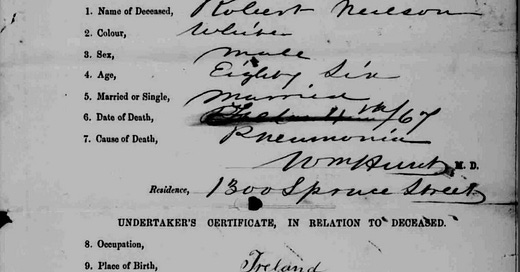 1. Name of Deceased, Robert Neilson
2. Colour, White
3. Sex, Male
4. Age, Eighty Six
5. Married or Single, Married
6. Date of Death, 11th/67
7. Cause of Death, Pneumonia
Wm Hunt M. D.
Residence, 1300 Spruce Street
UNDERTAKER'S CERTIFICATE, IN RELATION TO DECEASED.
8. Occupation,
9. Place of Birth, Ireland